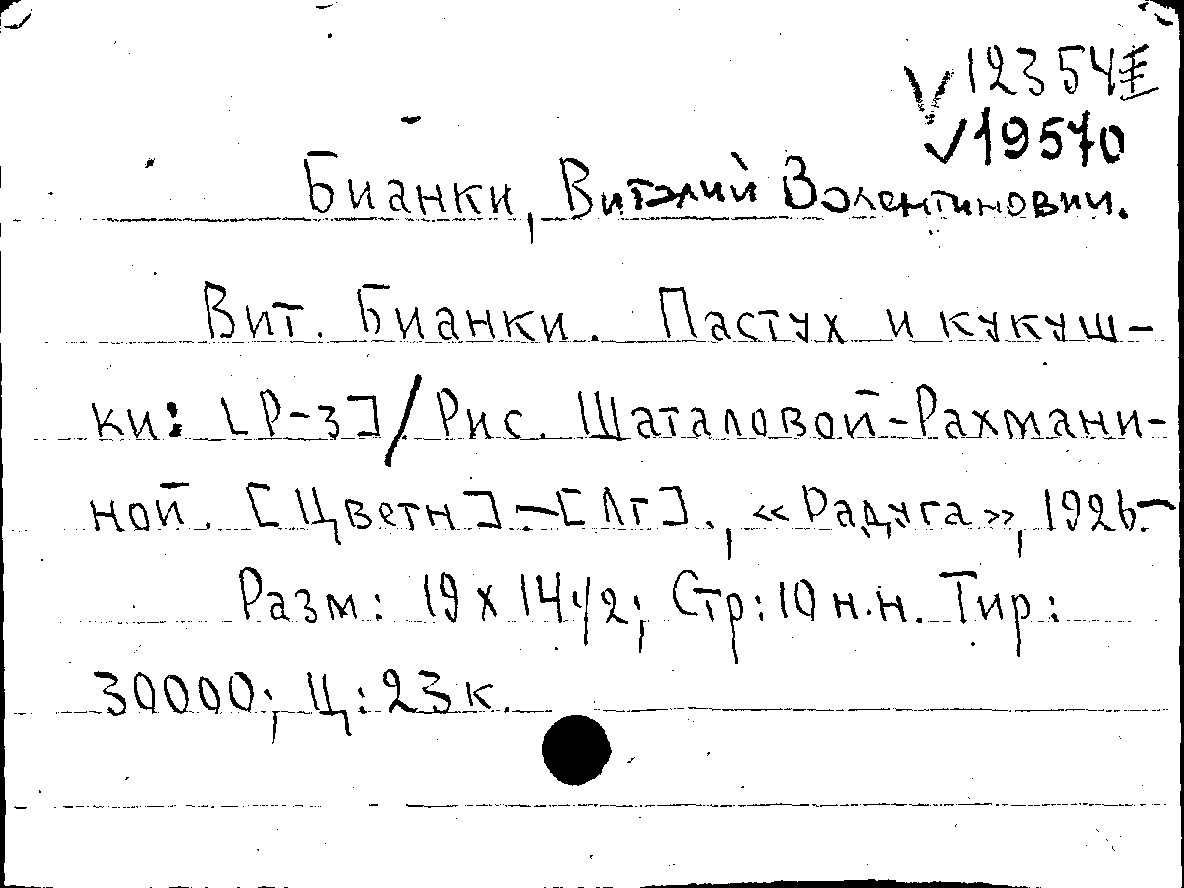 √12354
√19570
Бианки, Виталий Валентинович.
Вит. Бианки. Пастух и кукуш-
ки: [Р-з]/Рис. Шаталовой-Рахмани-
ной. [Цветн].—[Лг]., «Радуга», 1926.—
Разм: 19 х 14 1/2; Стр: 10 н.н. Тир:
30000; Ц: 23 к.